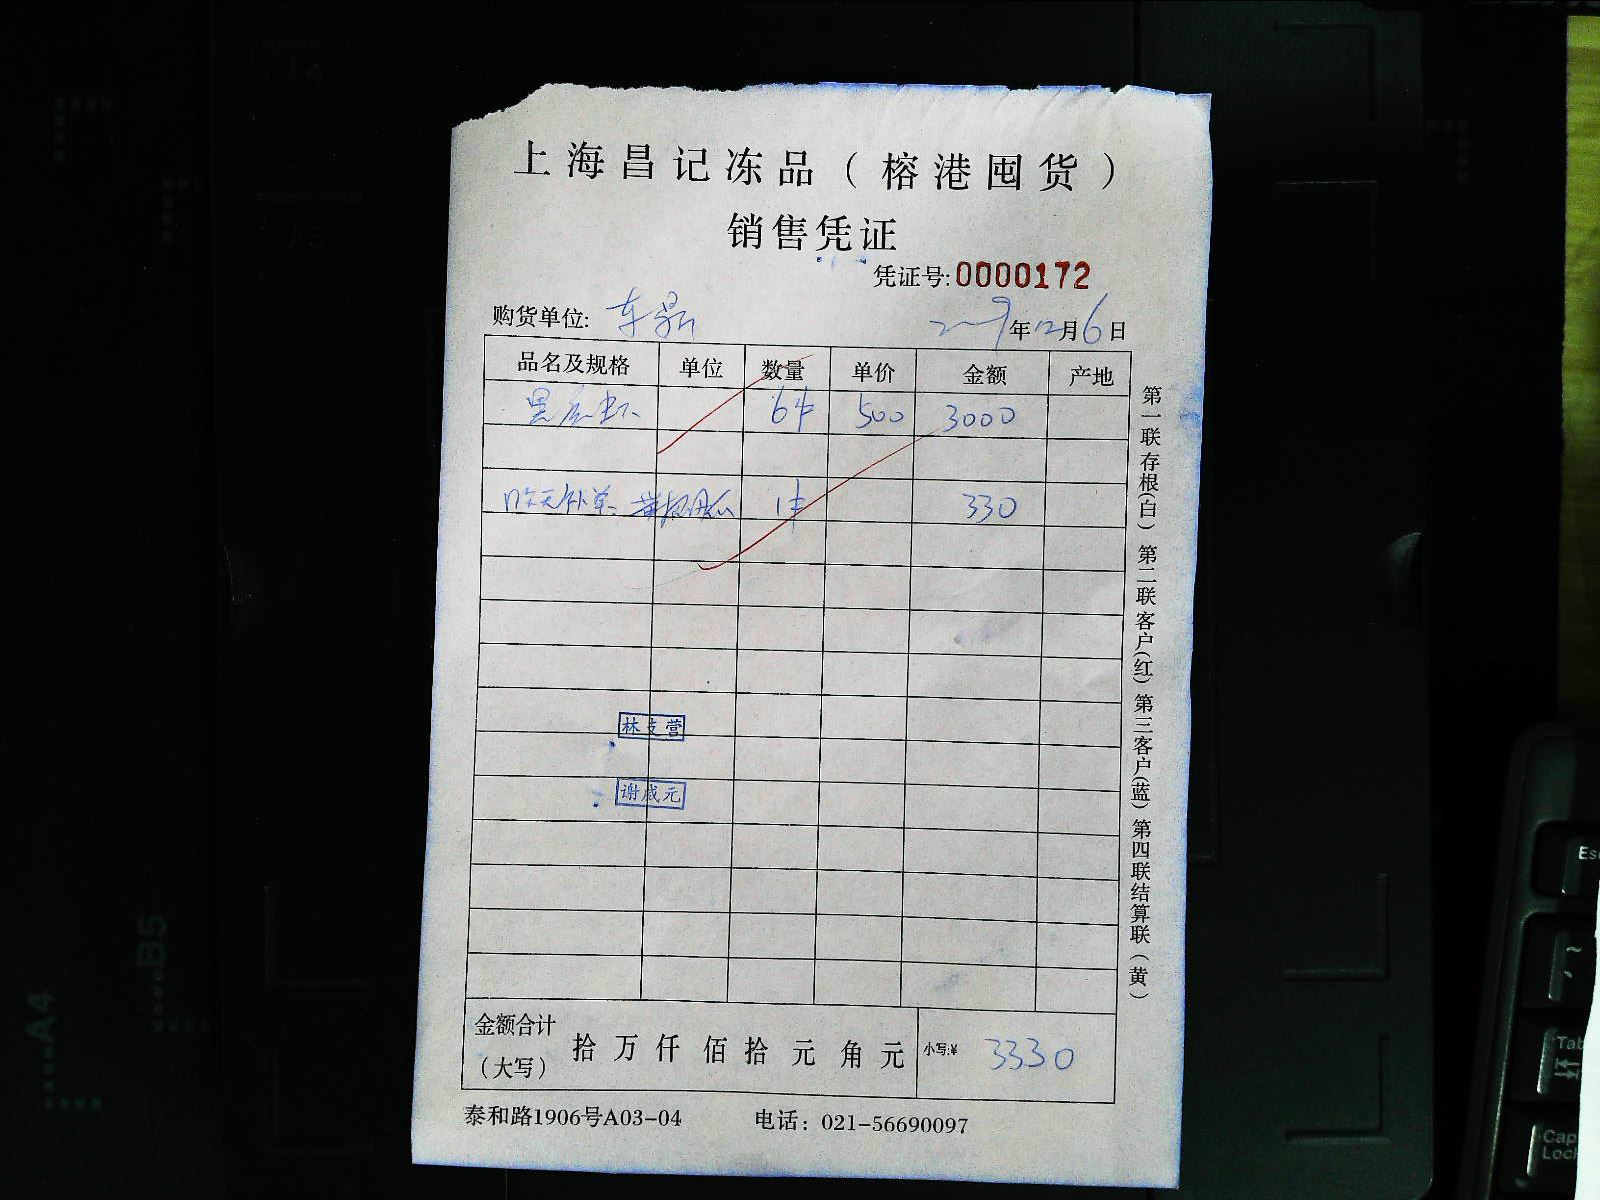 上海昌记冻品（榕港囤货）
销售凭证
凭证号:0000172
购货单位: 年 12月6日
品名及规格 单位 数量 单价 金额 产地
黑虎虾 6件 500 3000
昨天补单 1件 330
林支营
谢咸元
金额合计（大写） 拾 万 仟 佰 拾 元 角 元 小写:¥ 3330
泰和路1906号A03-04 电话：021-56690097
第一联存根（白） 第二联客户（红） 第三客户（蓝） 第四联结算联（黄）
A4
B5
Esc
Tab
Caps Lock